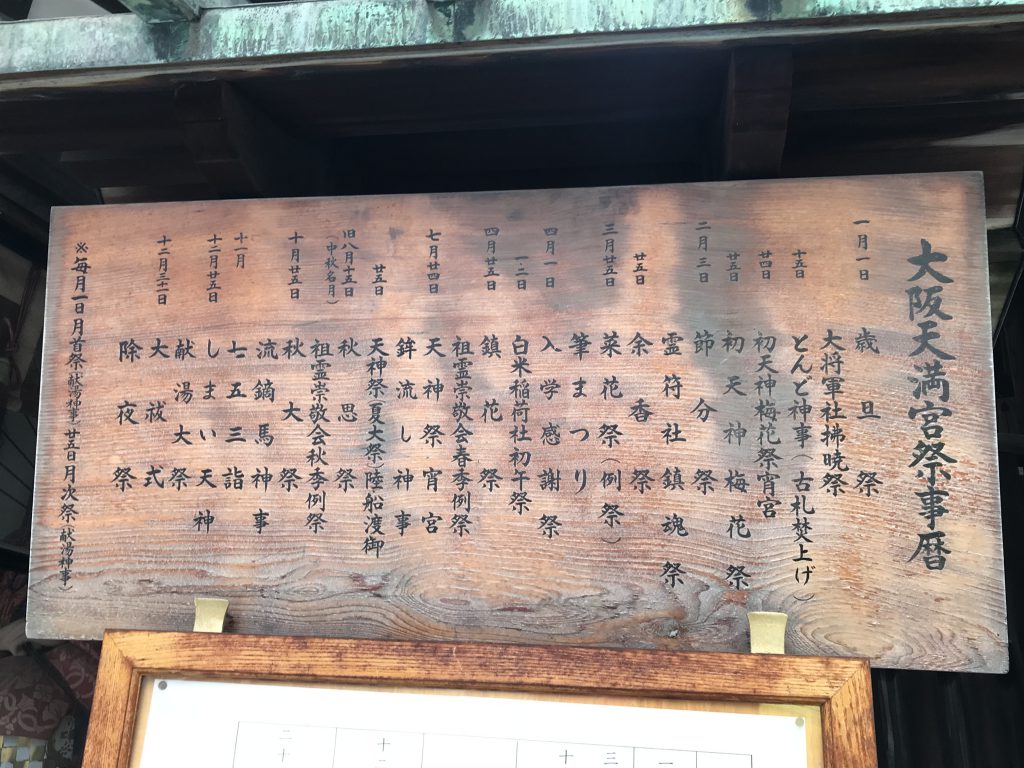 大阪天満宮祭事暦
一月一日 歳旦祭
大将軍社拂暁祭
十五日 とんど神事(古札焚上げ)
廿四日 初天神梅花祭宵宮
廿五日 初天神梅花祭
二月三日 節分祭
霊符社鎮魂祭
廿五日 余香祭
三月廿五日 菜花祭(例祭)
筆まつり
四月一日 入学感謝祭
一・二日 白米稲荷社初午祭
四月廿五日 鎮花祭
祖霊崇敬会春季例祭
七月廿四日 天神祭宵宮
鉾流し神事
廿五日 天神祭(夏大祭)陸船渡御
旧八月十五日(中秋名月) 秋思祭
祖霊崇敬会秋季例祭
十月廿五日 秋大祭
流鏑馬神事
十一月 七五三詣
十二月廿五日 しまい天神
献湯大祭
十二月三十一日 大祓式
除夜祭
※毎月一日月首祭(献湯神事) 廿五日月次祭(献湯神事)
一
三
十
二十